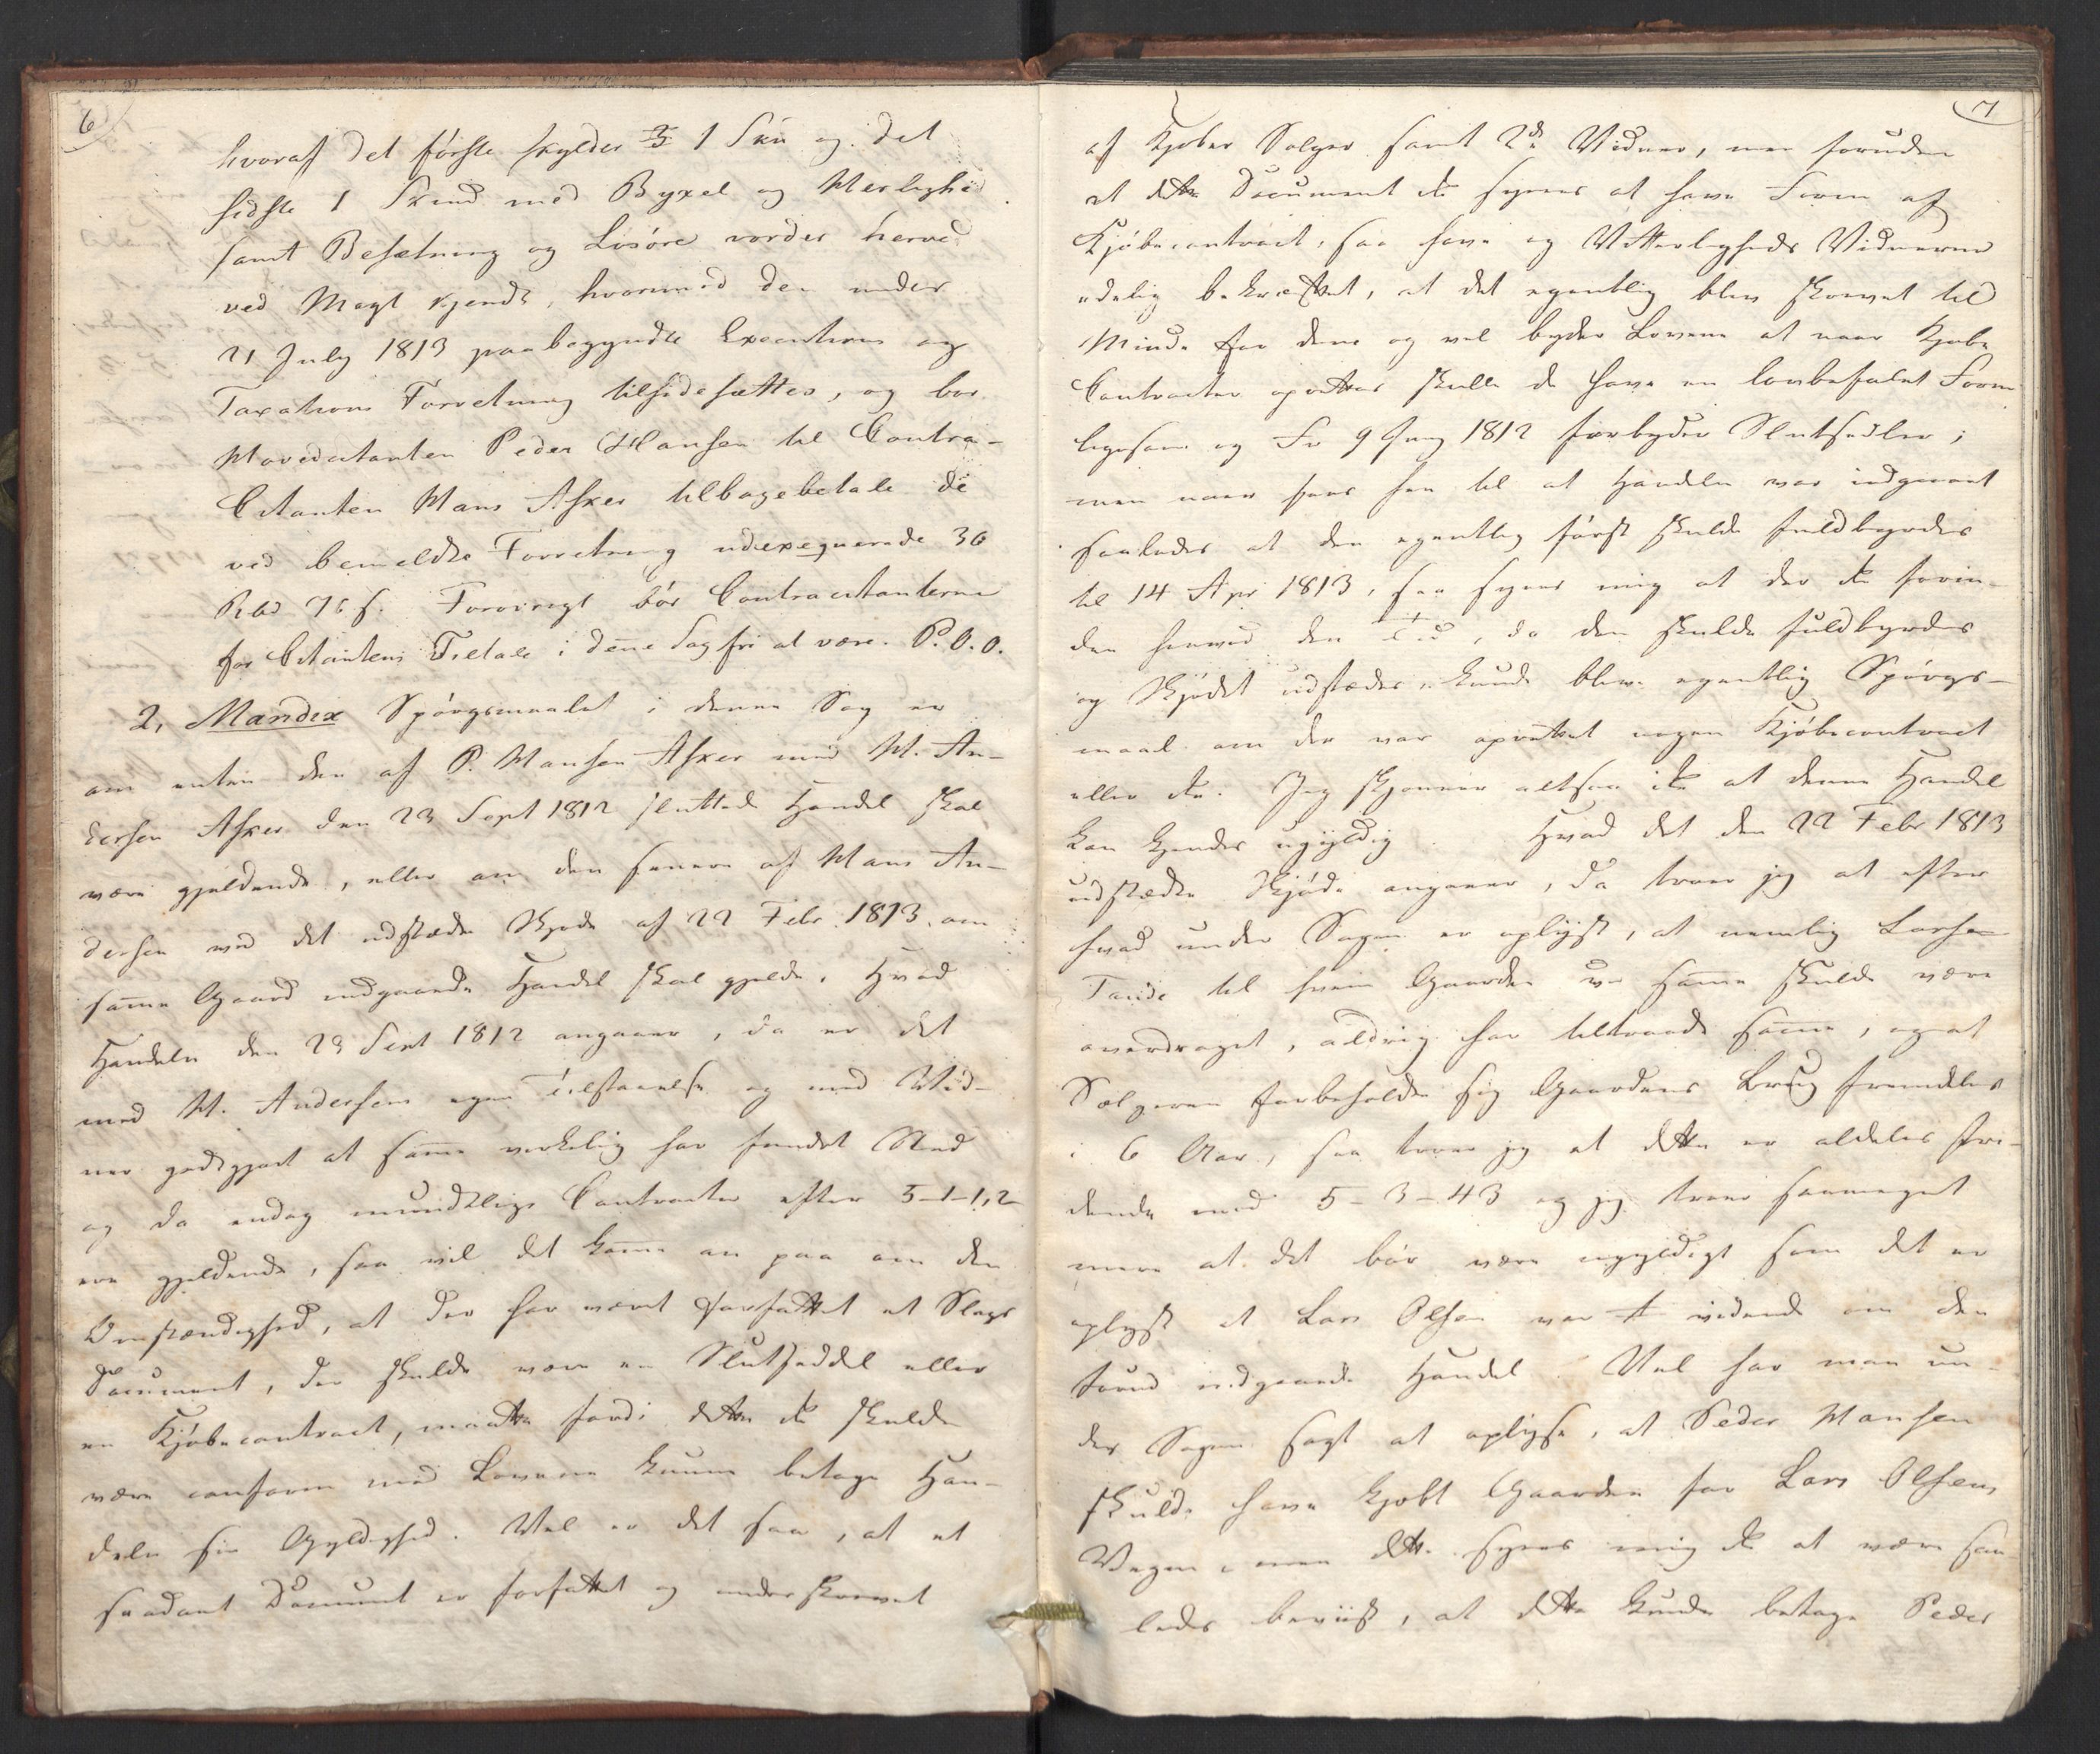 6
hvoraf det første skylder 3 1 Skn og det
sidste 1 Skind med Byxel og Herlighed
samt Besætning og Løsøre vorder herved
ved Magt kjendt, hvorimod den under
21 July 1813 paabegyndte Executions og
Taxations Forretning tilsidesættes, og bør
Hovedcitanten Peder Hansen til Contra-
Citanten Hans Asker tilbagebetale de
ved bemeldte Forretning udexeqverede 36
Rbd 76 s. Forøvrigt bør Contracitanterne
for Citantens Tiltale i denne Sag fri at være. P. O. O.
2, Mandix Spørgsmaalet i denne Sag er
om enten den af P. Hansen Asker med H. An-
dersen Asker den 23 Sept 1812 sluttede Handel skal
være gjeldende, eller om den senere af Hans An-
dersen ved det udstædte Skjøde af 22 Febr. 1813 om
samme Gaard indgaaede Handel skal gjelde. Hvad
Handelen den 23 Sept 1812 angaaer, da er det
med H. Andersens egen Tilstaaelse og med Vid-
ner godtgjort at samme virkelig har fundet Sted
og da endog mundtlige Contracter efter 5-1-1,2
ere gjeldende, saa vil det komme an paa om den
Omstændighed, at der har været forfattet et Slags
Document, der skulde være en Slutseddel eller
en Kjøbecontract, maatte fordi dette ei skulde
være conform med Lovene kunne betage Han-
delen sin Gyldighed. Vel er det saa, at et
saadant Document er forfattet og underskrevet
7
af Kjøber Sælger samt 2de Vidner, men foruden
at dette Document ei synes at have Form af
Kjøbecontract, saa have og Vitterligheds Vidnerne
edelig bekræftet, at det egentlig blev skrevet til
Minde for dem og vel byder Lovene at naar Kjøbe
Contracter oprettes skulle de have en lovbefalet Form
ligesom og Fr 9 Juny 1812 forbyder Slutsedler;
men naar sees hen til at Handelen var indgaaet
saaledes at den egentlig først skulde fuldbyrdes
til 14 Apr 1813, saa synes mig at der ei forin-
den henved den Tid, da den skulde fuldbyrdes
og Skjødet udstædes, kunde blive egentlig Spørgs-
maal om der var oprettet nogen Kjøbecontract
eller ei. Jeg skjønner altsaa ei at denne Handel
kan kjendes ugyldig. Hvad det den 22 Febr 1813
udstædte Skjøde angaaer, da troer jeg at efter
hvad under Sagen er oplyst, at nemlig Larsen
til hvem Gaarden ved samme skulde være
overdraget, aldrig har tiltraadt samme, og at
Sælgeren forbeholdte sig Gaardens Brug fremdeles
i 6 Aar, saa troer jeg at dette er aldeles stri-
dende mod 5-3-43 og jeg troer saameget
mere at det bør være ugyldigt som det er
oplyst at Lars Olsen var vidende om den
forud indgaaede Handel. Vel har man un-
der Sagen søgt at oplyse, at Peder Hansen
skulde have kjøbt Gaarden for Lars Olsens
Vegne, men dette synes mig ei at være saa
ledes beviist, at dette kunde betage Peder